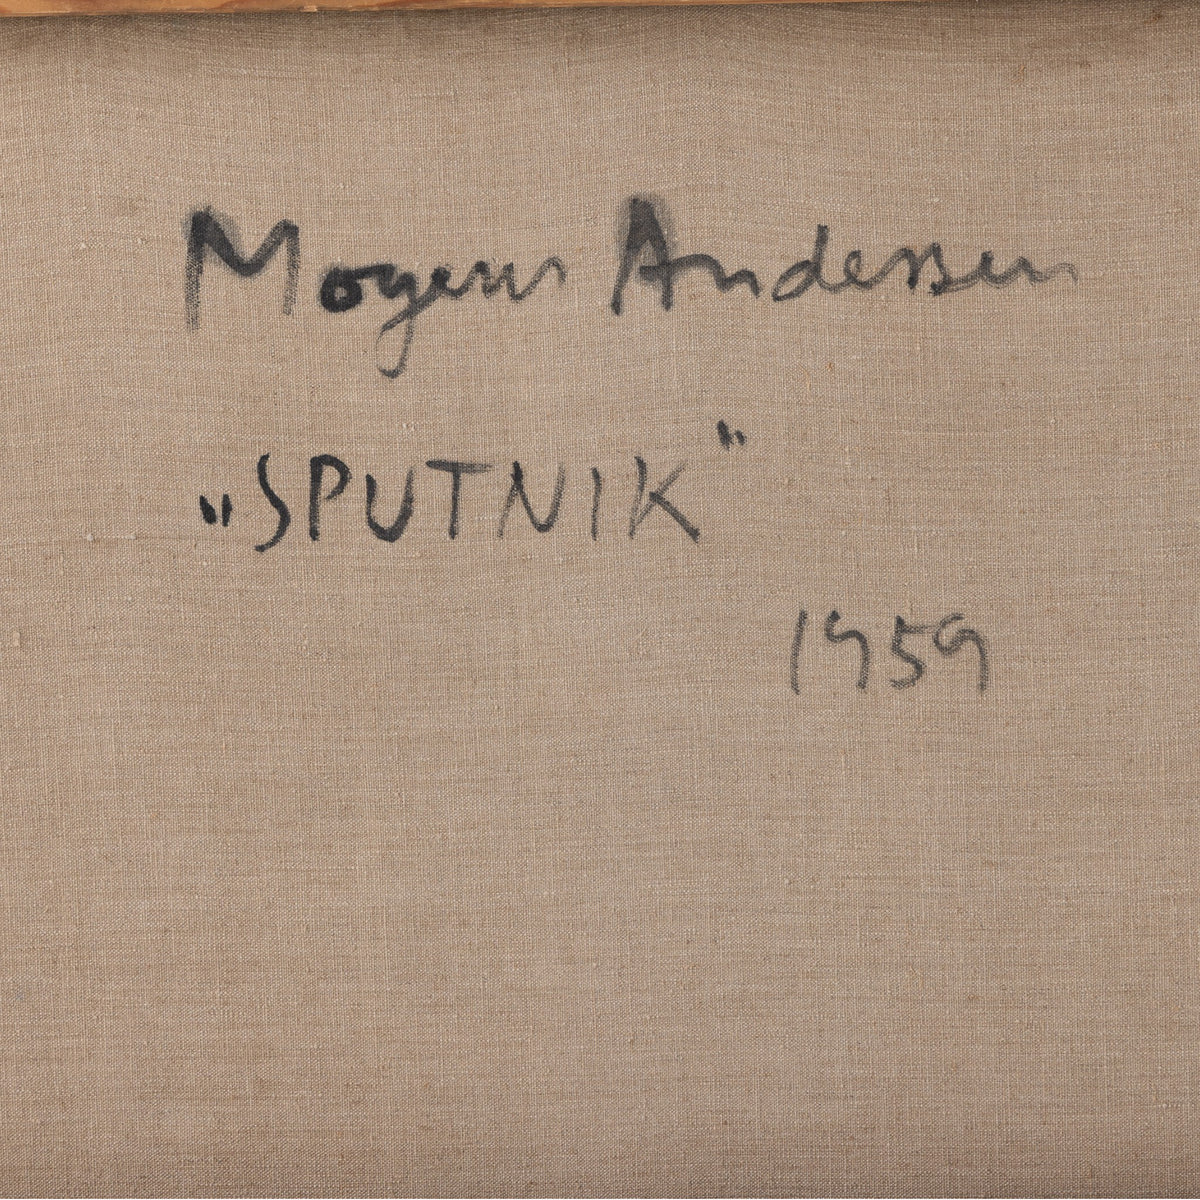 Mogens Andersen
„SPUTNIK"
1959